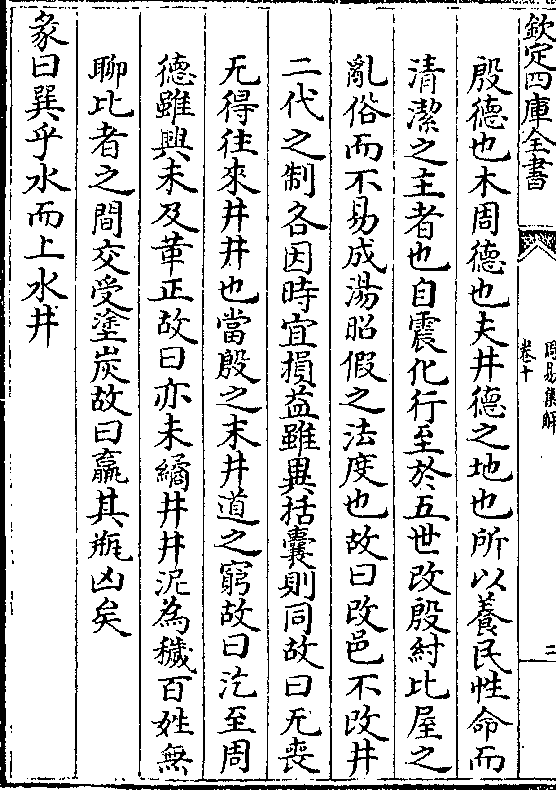 欽定四庫全書
周易集解
卷十
二
殷德也木周德也夫井德之地也所以養民性命而
清潔之主者也自震化行至於五世改殷紂比屋之
亂俗而不易成湯昭假之法度也故曰改邑不改井
二代之制各因時宜損益雖異括囊則同故曰无喪
无得往來井井也當殷之末井道之窮故曰汔至周
德雖興未及革正故曰亦未繘井井泥為穢百姓無
聊比者之間交受塗炭故曰羸其瓶凶矣
彖曰巽乎水而上水井